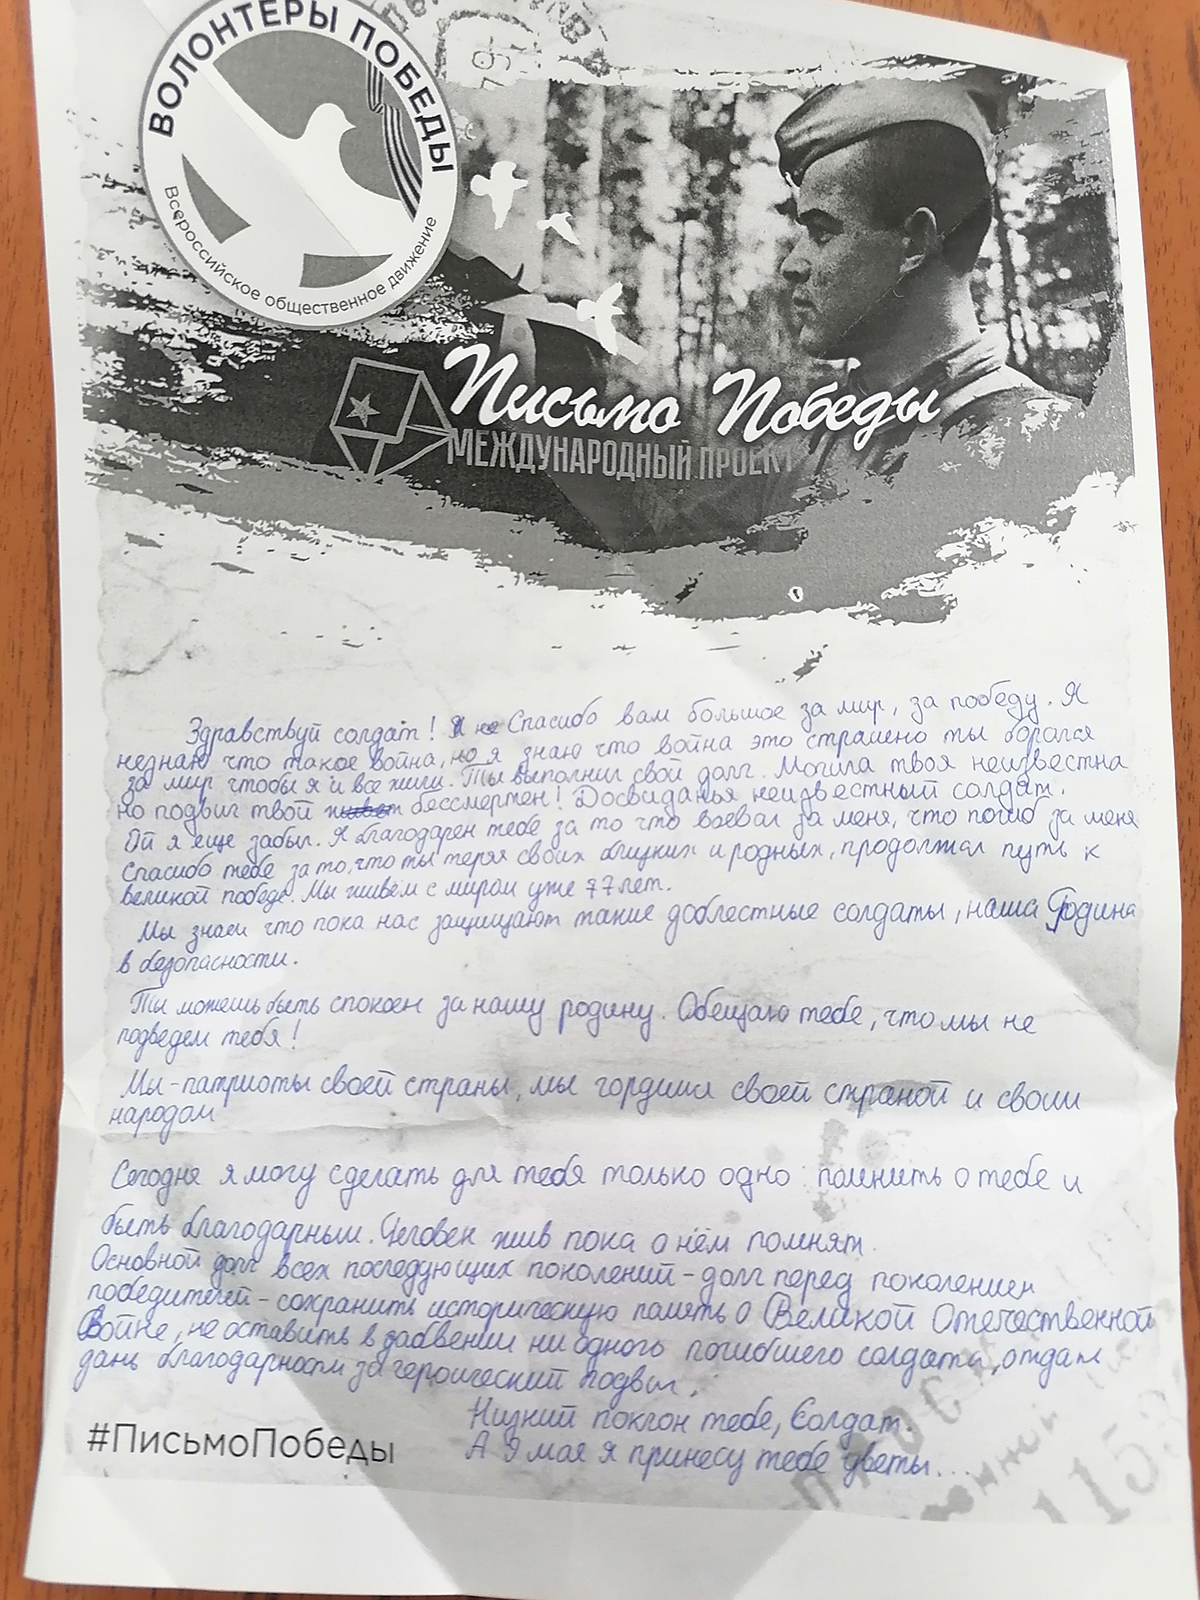 ВОЛОНТЕРЫ ПОБЕДЫ
Всероссийское общественное движение
Письмо Победы
МЕЖДУНАРОДНЫЙ ПРОЕКТ
Здравствуй солдат! Я не Спасибо вам большое за мир, за победу. Я
незнаю что такое война, но я знаю что война это страшно ты боролся
за мир чтобы я и все жили. Ты выполнил свой долг. Могила твоя неизвестна
но подвиг твой живет бессмертен! Досвиданья неизвестный солдат.
Ой я еще забыл. Я благодарен тебе за то что воевал за меня, что погиб за меня
Спасибо тебе за то, что ты теряя своих близких и родных, продолжал путь к
великой победе. Мы живём с миром уже 77 лет.
Мы знаем что пока нас защищают такие доблестные солдаты, наша Родина
в безопасности.
Ты можешь быть спокоен за нашу родину. Обещаю тебе, что мы не
подведем тебя!
Мы-патриоты своей страны, мы гордимся своей страной и своим
народом
Сегодня я могу сделать для тебя только одно: помнить о тебе и
быть благодарным. Человек жив пока о нём помнят.
Основной долг всех последующих поколений - долг перед поколением
победителей - сохранить историческую память о Великой Отечественной
Войне, не оставить в забвении ни одного погибшего солдата, отдать
дань благодарности за героический подвиг.
Низкий поклон тебе, Солдат.
А 9 мая я принесу тебе цветы...
#ПисьмоПобеды